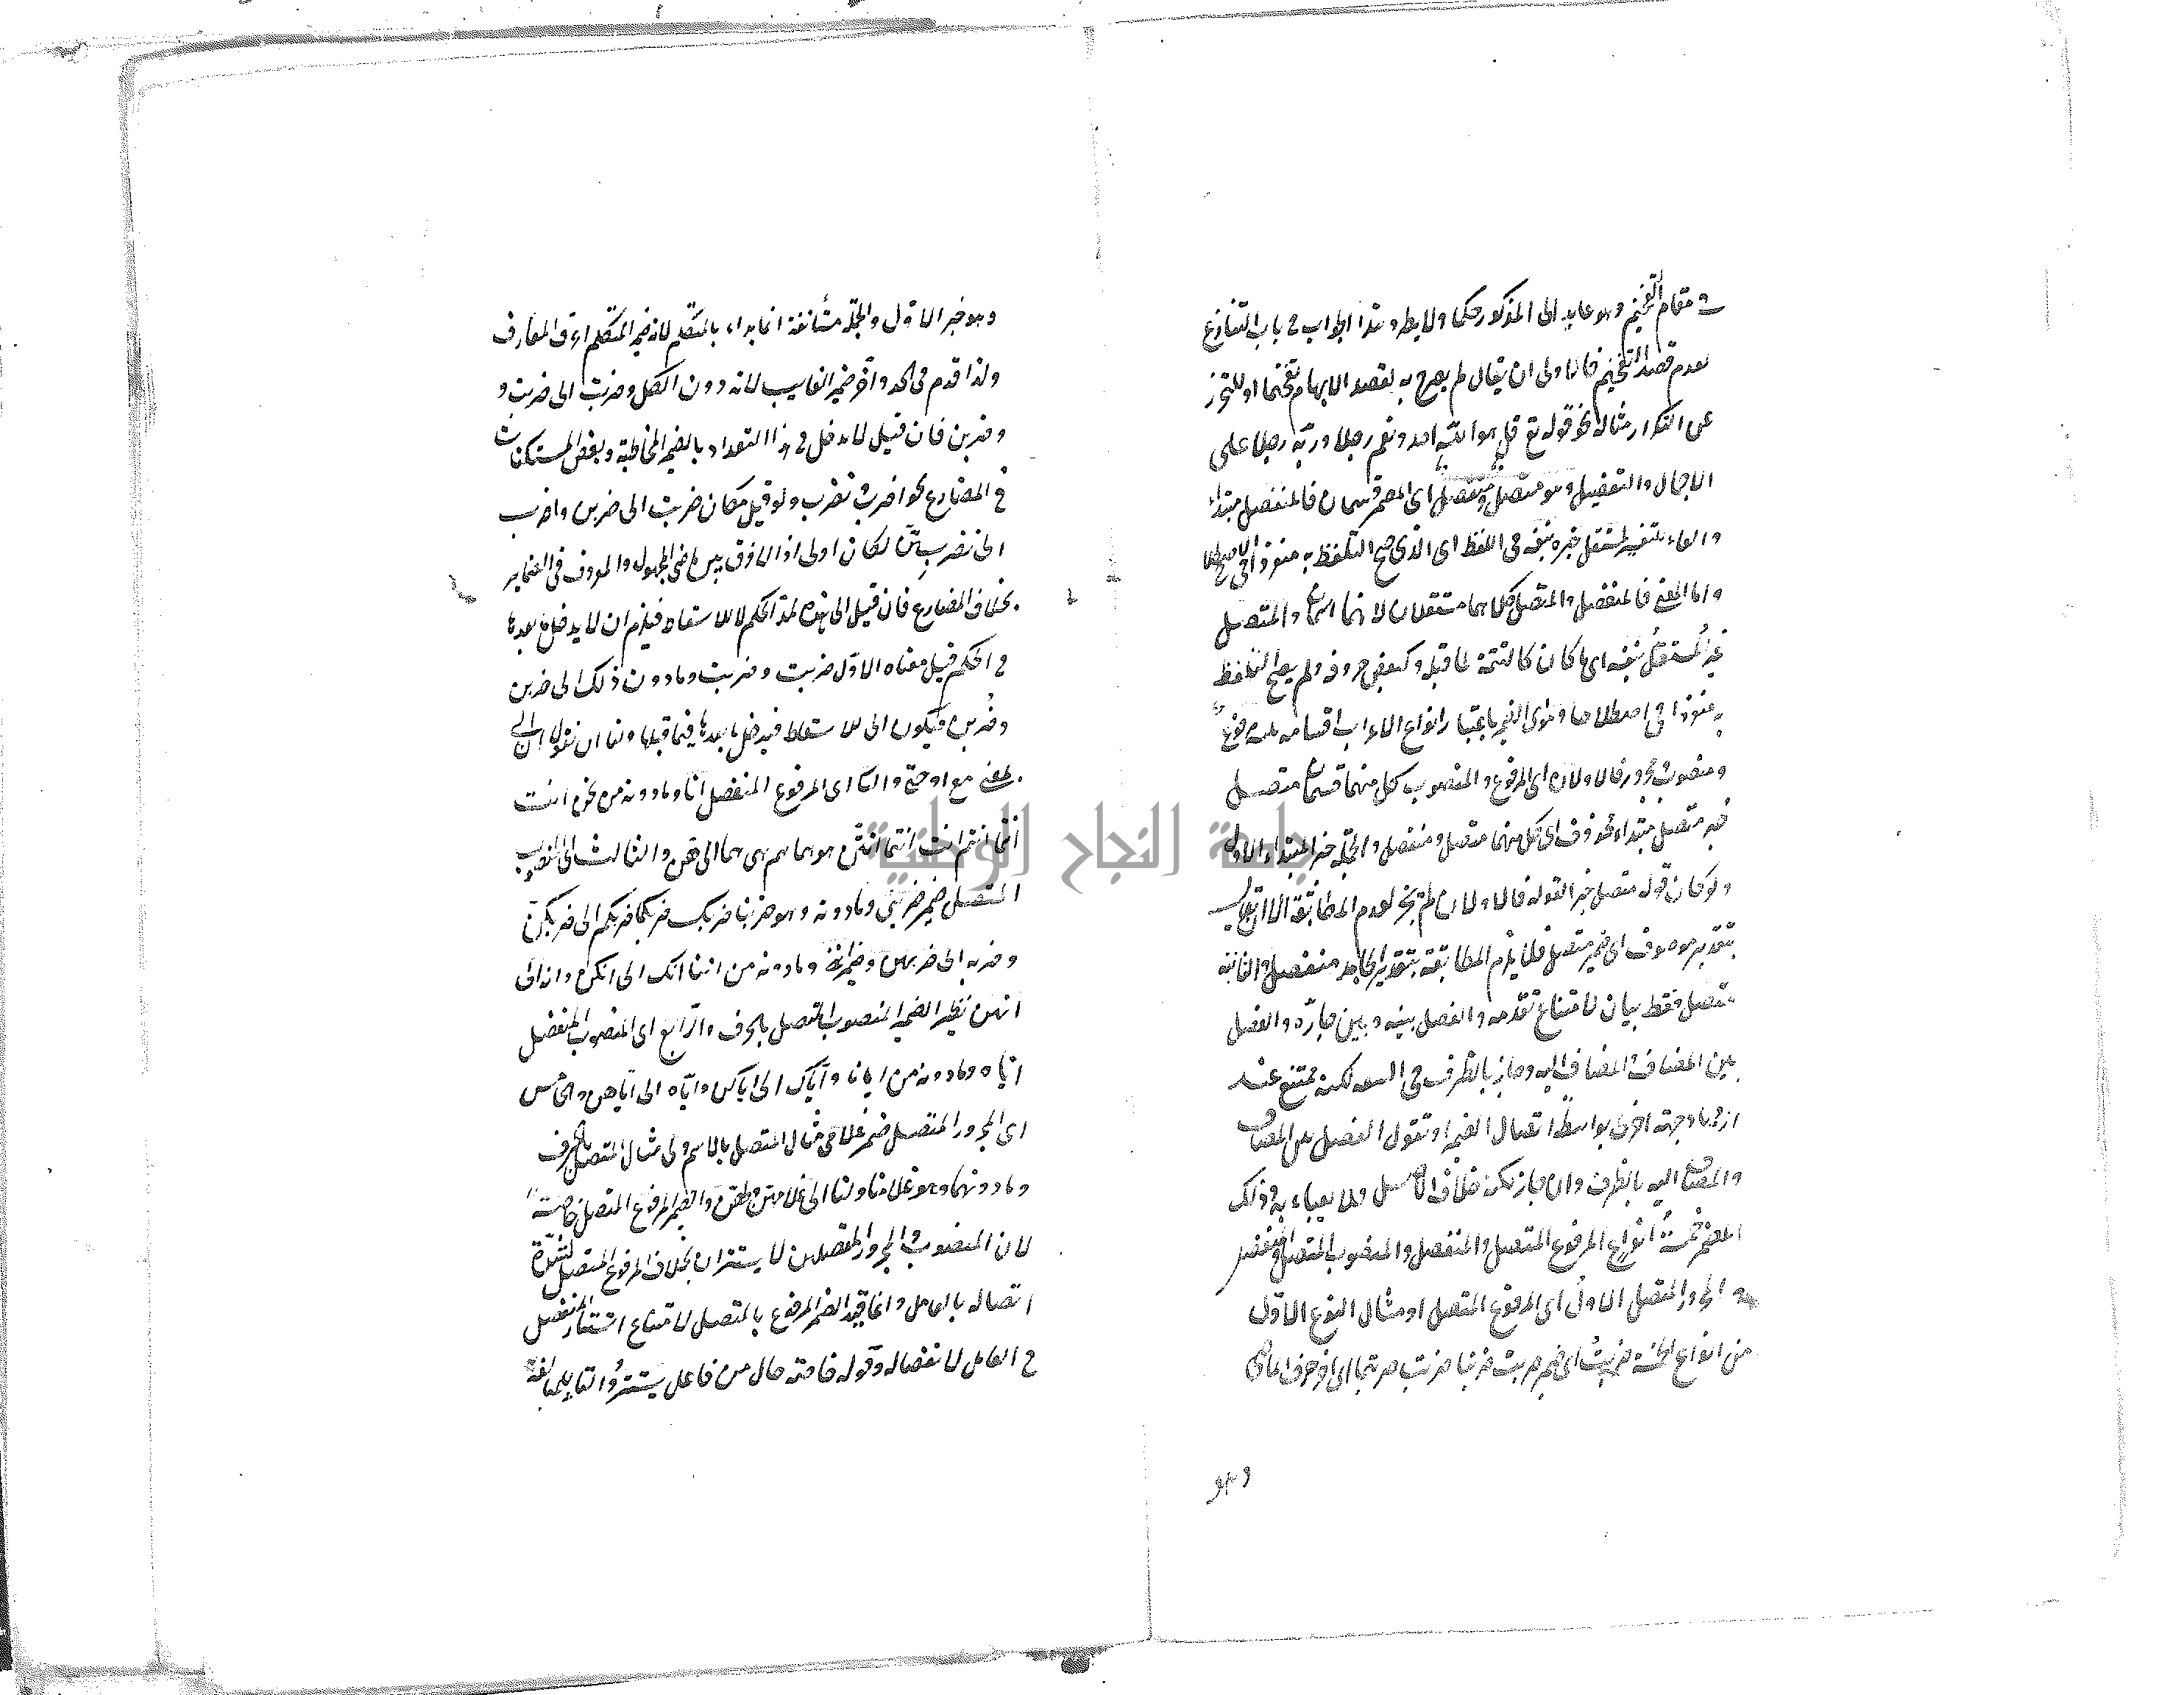 في مقام التفخيم وهو عايد الى المذكور حكما ولا يطرد هذا الجواب في باب التنازع
لعدم قصد التفخيم فالاولى ان يقال لم يصرح به لقصد الابهام تفخيما او للتحرز
عن التكرار مثاله نحو قوله تع قل هو الله احد ونعم رجلا وربه رجلا على
الاجمال والتفصيل وهو متصل ومنفصل اى المضمر قسمان فالمنفصل مبتداء
والفاء للتفسير المستقل خبره بنفسه في اللفظ اى الذى صح التلفظ به منفردا في الاصطلاح
واما المعنى فالمنفصل والمتصل كلاهما مستقلان لانهما اسمان والمتصل
غير المستقل بنفسه اى ما كان كالتتمة لما قبله وكبعض حروفه ولم يصح التلفظ
به منفردا في اصطلاحنا وهو اى الضمير باعتبار انواع الاعراب اقسامه ثلاثة مرفوع
ومنصوب ومجرور فالاولان اى المرفوع والمنصوب كل منهما قسمان متصل
خبر متصل مبتداء محذوف اى كل منهما متصل ومنفصل والجملة خبر المبتداء الاول
ولو كان قوله متصل خبرا لقوله فالاولان لم يجز لعدم المطابقة الا ان
بتقدير موصوف اى ضمير متصل فلا يلزم المطابقة بتقدير الجامد منفصل والثالث
متصل فقط بيان لامتناع تقدمه والفصل بينه وبين جاره والفصل
بين المضاف والمضاف اليه وجاز بالظرف في السعة لكنه ممتنع عند
ازدياد جهة اخرى بواسطة اتصال الضمير او تقول الفصل بين المضاف
والمضاف اليه بالظرف وان جاز لكنه خلاف الاصل ولا يعباء به فذلك
المضمر خمسة انواع المرفوع المتصل والمنفصل والمنصوب المتصل والمنفصل
والمجرور المتصل الاول اى المرفوع المتصل او مثال النوع الاول
من انواع الخمسة ضربت اى ضمير ضربت ضربنا ضربت ضربتما الى اخر حرف الماضى
وهو
وهو خبر الاول والجملة مستأنفة انما بداء بالمتكلم لان ضمير المتكلم اعرف المعارف
ولذا قدم في الحد واخر ضمير الغايب لانه دون الكل وضربت الى ضربت و
وضربن فان قيل لا يدخل في هذا التعداد بالضمير المخاطبة وبعض المستكنات
في المضارع نحو اضرب تضرب ولو قيل مكان ضربت الى ضربن واضرب
الى تضربين لكان اولى اذ لا فرق بين ماضى المجهول والمعروف في الضماير
بخلاف المضارع فان قيل الى هذه لمد الحكم لا للاسقاط فيلزم ان لا يدخل ما بعدها
في الحكم قيل معناه الاول ضربت وضربت وما دون ذلك الى ضربن
وضربن فيكون الى للاسقاط فيدخل ما بعدها فيما قبلها ولنا ان نقول ان الى
بمعنى مع او حتى والثانى اى المرفوع المنفصل انا وما دونه من نحن انت
انتما انتم انت انتما انتن هو هما هم هى هما الى هن والثالث اى المنصوب
المتصل ضمير ضربنى وما دونه وهو ضربنا ضربك ضربكما ضربكم الى ضربكن
وضربه الى ضربهن وضمير اننى وما دونه من اننا انك الى انكن وانه الى
انهن نظير الضمير المنصوب المتصل بالحرف والرابع اى المنصوب المنفصل
اياى وما دونه من ايانا واياك الى اياكن واياه الى اياهن والخامس
اى المجرور المتصل ضمير غلامى مثال المتصل بالاسم ولى مثال المتصل بالحرف
وما دونهما وهو غلامنا ولنا الى غلامهن ولهن والضمير المرفوع المتصل خاصة
لان المنصوب والمجرور المتصلين لا يستتران بخلاف المرفوع المتصل لشدة
اتصاله بالعامل وانما قيد الضمير المرفوع بالمتصل لامتناع استتار المنفصل
في العامل لانفصاله وقوله خاصة حال من فاعل يستتر والتاء للمبالغة
جامعة النجاح الوطنية